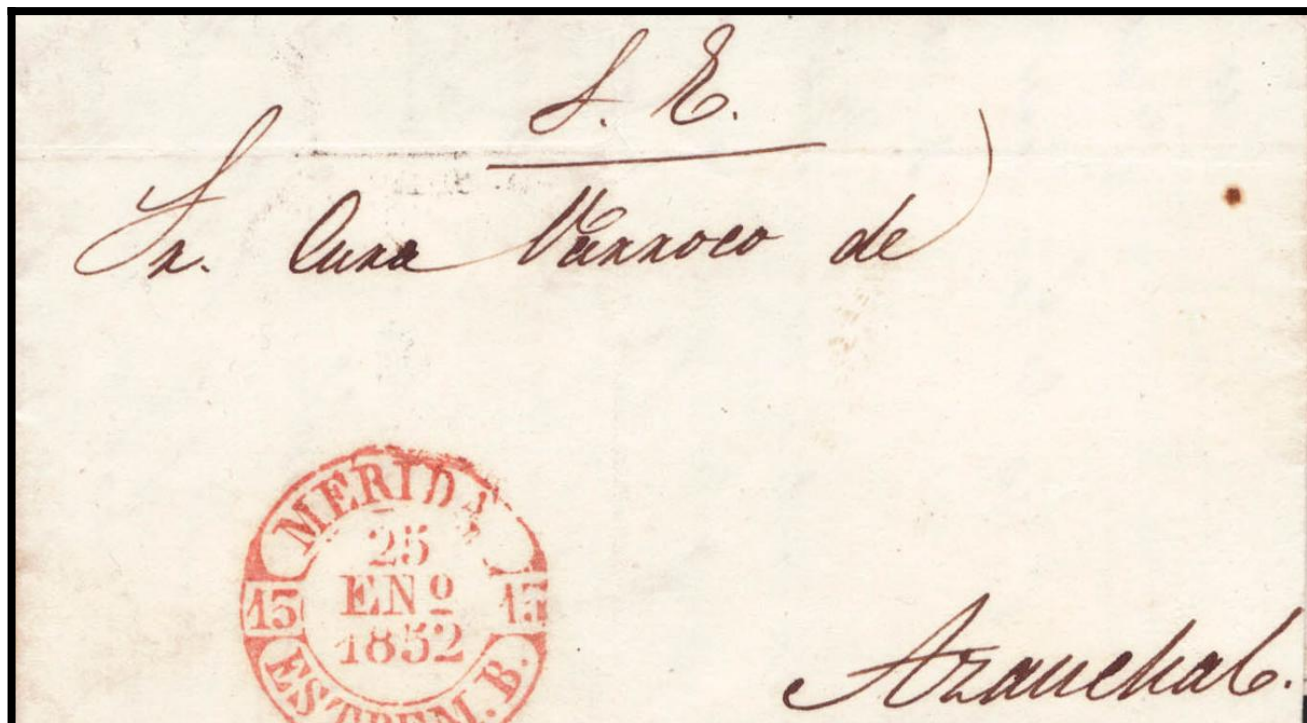 S. E.
Sr. Cura Parroco de
MERIDA
25
ENº
1852
15 15
ESTREM. B.
Azauchal.